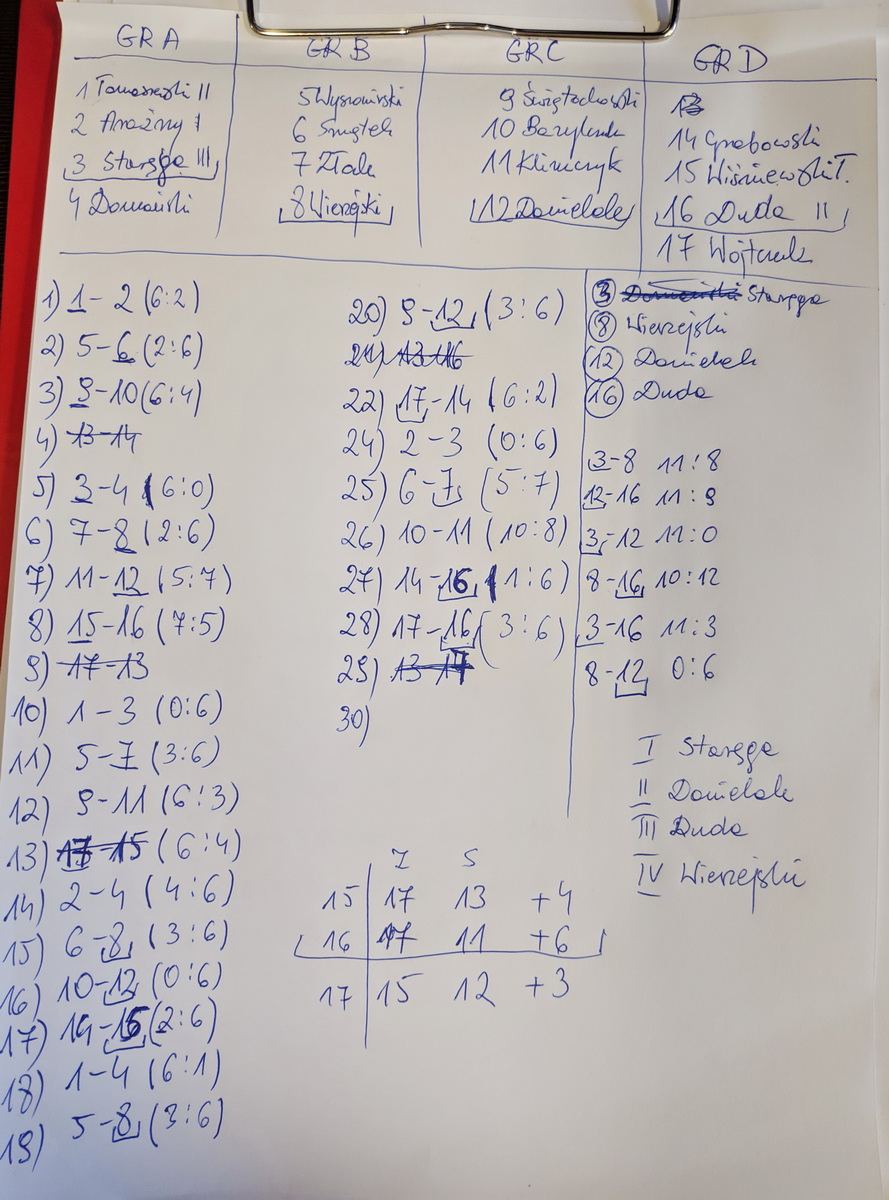 GR A
1 Tomaszewski II
2 Mroźny I
3 Staręga III
4 Domański
GR B
5 Wyszomirski
6 Smętek
7 Złak
8 Wierzejski
GR C
9 Świętochowski
10 Bazyluk
11 Klimczyk
12 Danielak
GR D
13
14 Grabowski
15 Wiśniewski T.
16 Duda II
17 Wojtczuk
1) 1-2 (6:2)
2) 5-6 (2:6)
3) 9-10 (6:4)
4) 13-14
5) 3-4 (6:0)
6) 7-8 (2:6)
7) 11-12 (5:7)
8) 15-16 (7:5)
9) 17-13
10) 1-3 (0:6)
11) 5-7 (3:6)
12) 9-11 (6:3)
13) 17-15 (6:4)
14) 2-4 (4:6)
15) 6-8 (3:6)
16) 10-12 (0:6)
17) 14-15 (2:6)
18) 1-4 (6:1)
19) 5-8 (3:6)
20) 9-12 (3:6)
21) 13-16
22) 17-14 (6:2)
24) 2-3 (0:6)
25) 6-7 (5:7)
26) 10-11 (10:8)
27) 14-16 (1:6)
28) 17-16 (3:6)
29) 13-17
30)
3 Domański Staręga
8 Wierzejski
12 Danielak
16 Duda
3-8 11:8
12-16 11:9
3-12 11:0
8-16 10:12
3-16 11:3
8-12 0:6
I Staręga
II Danielak
III Duda
IV Wierzejski
Z S
15 17 13 +4
16 17 11 +6
17 15 12 +3